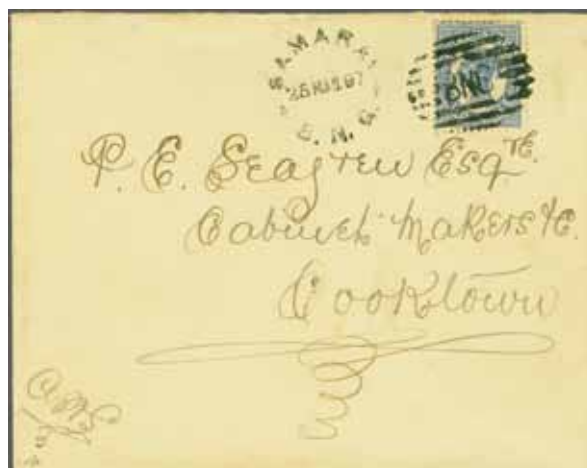 SAMARAI
B.N.G.
BNG
P. E. Seagren Esqre.
Cabinet Makers &c.
Cooktown